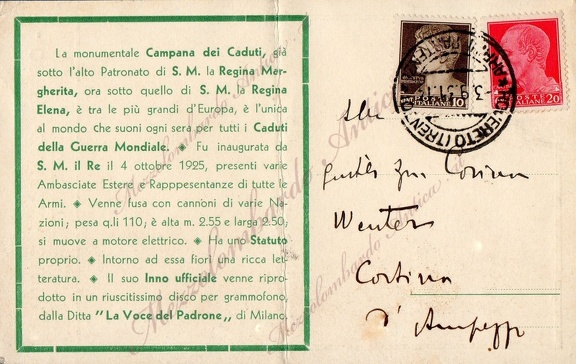 La monumentale Campana dei Caduti, già
sotto l'alto Patronato di S. M. la Regina Mar-
gherita, ora sotto quello di S. M. la Regina
Elena, è tra le più grandi d'Europa, è l'unica
al mondo che suoni ogni sera per tutti i Caduti
della Guerra Mondiale. ◈ Fu inaugurata da
S. M. il Re il 4 ottobre 1925, presenti varie
Ambasciate Estere e Rapppesentanze di tutte le
Armi. ◈ Venne fusa con cannoni di varie Na-
zioni; pesa q.li 110; è alta m. 2.55 e larga 2.50;
si muove a motore elettrico. ◈ Ha uno Statuto
proprio. ◈ Intorno ad essa fiorì una ricca let-
teratura. ◈ Il suo Inno ufficiale venne ripro-
dotto in un riuscitissimo disco per grammofono,
dalla Ditta "La Voce del Padrone" di Milano.
POSTE
ITALIANE 10
POSTE
ITALIANE 20
Cortina
d'Ampezzo
Mezzolombardo Antica